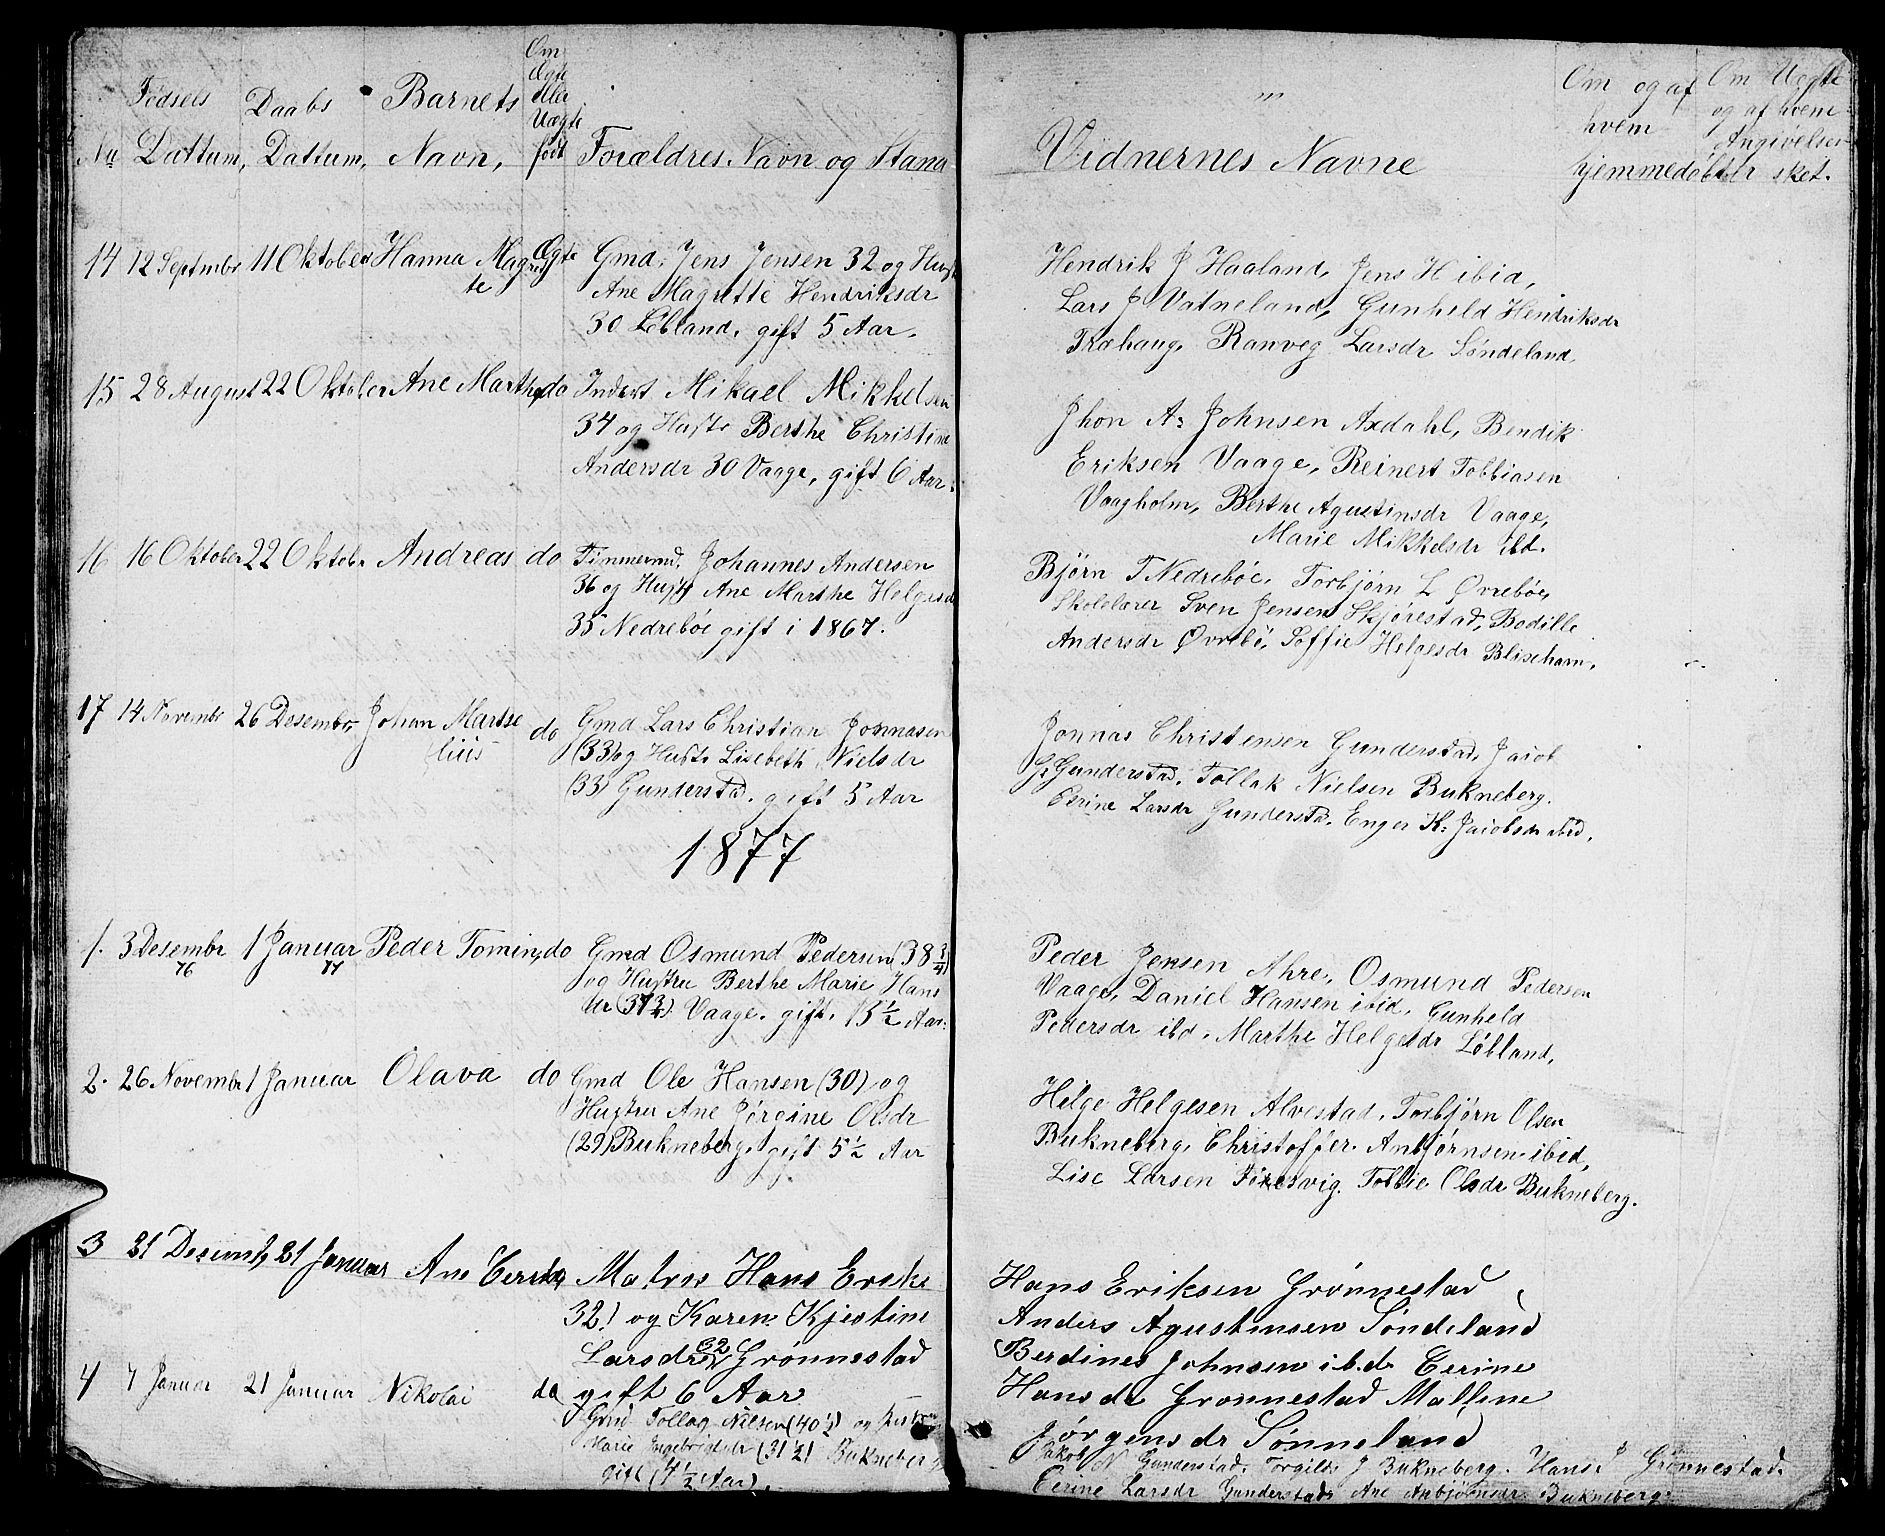 No Fødsels Dattum, Daabs Dattum, Barnets Navn, Om Ægte eller Uægte født Forældres Navn og Stand
Vidnernes Navne
Om og af hvem hjemmedøbt
Om Uægte og af hvem Angivelsen er sket.
14 12 Septmbr 11 Oktober Hanna Magret Ægte Gmd. Jens Jensen 32 og Hust
te Ane Magrette Hendriksdr
30 Løbland, gift 5 Aar.
Hendrik J Haaland, Jens H ibid,
Lars J Vatneland, Gunheld Hendriksdr
Træhaug, Ranveg Larsdr Søndeland,
15 28 August 22 Oktober Ane Marthe do Inderst Mikael Mikkelsen
34 og Hustr Berthe Christine
Andersdr 30 Vaage, gift 6 Aar.
Jhon A: Johnsen Axdahl, Bendik
Eriksen Vaage, Reinert Tobbiasen
Vaagholm, Berthe Agustinsdr Vaage,
Marie Mikkelsdr ibd.
16 16 Oktober 22 Oktobr Andreas do Timmermd. Johannes Andersen
36 og Hust Ane Marthe Helgesd
35 Nedrebøe gift i 1867.
Bjørn T Nedrebøe, Torbjørn L Øvrebøe,
Skolelærer Sven Jensen Skjørestad, Bodille
Andersdr Øvrebø, Soffie Helgesdr Blixeham,
17 14 Novembr 26 Desembr, Johan Martse do Gmd Lars Christian Jonnasen
lius (33) og Hustr Lisebeth Nielsdr
(33) Gunderstad, gift 5 Aar
Jonnas Christensen Gunderstad, Jacob
G: Gunderstad, Tollak Nielsen Bukneberg.
Eerine Larsdr Gunderstd. Enger K: Jacobsdr ibid.
1877
1. 3 Desembr 1 Januar Peder Tomine, do Gmd Osmund Pedersen (38 3/4)
76 77 og Hustru Berthe Marie Hans
dr (37 3/4) Vaage. gift. 15 1/2 Aar.
Peder Jensen Ahre, Osmund Pedersen
Vaage, Daniel Hansen ibid, Gunheld
Pedersdr ibd. Marthe Helgesdr Løbland,
2. 26 Novembr 1 Januar Olava do Gmd Ole Hansen (30) og
Hustru Ane Jørgine Olsdr
(29) Bukneberg, gift 5 1/2 Aar
Helge Helgesen Alvestad, Torbjørn Olsen
Bukneberg, Christoffer Anbjørnsen ibid,
Lise Larsen Føresvig. Tobbie Olsdr Bukneberg.
3 21 Desemb, 21 Januar Ane do Matros Hans Erikse
32) og Karen Kjestine
Larsdr 32 Grønnestad
gift 6 Aar
Hans Eriksen Grønnestad
Anders Agustinsen Søndeland
Berdines Johnsen i.b.d. Eerine
Hansdr Grønnestad Malline
Jørgensdr Sønneland
4 7 Januar 21 Januar Nikolai do Gmd Tollag Nilsen (40 1/2) og Hustru
Marie Ingebrigtsdr (31 1/2) Bukneberg
gift (4 1/2 Aar).
Jakob N Gunderstad, Torgils J Bukneberg. Hans J Grønnestad.
Eerine Larsdr Gunderstad, Ane Anbjørnsdr Bukneberg.